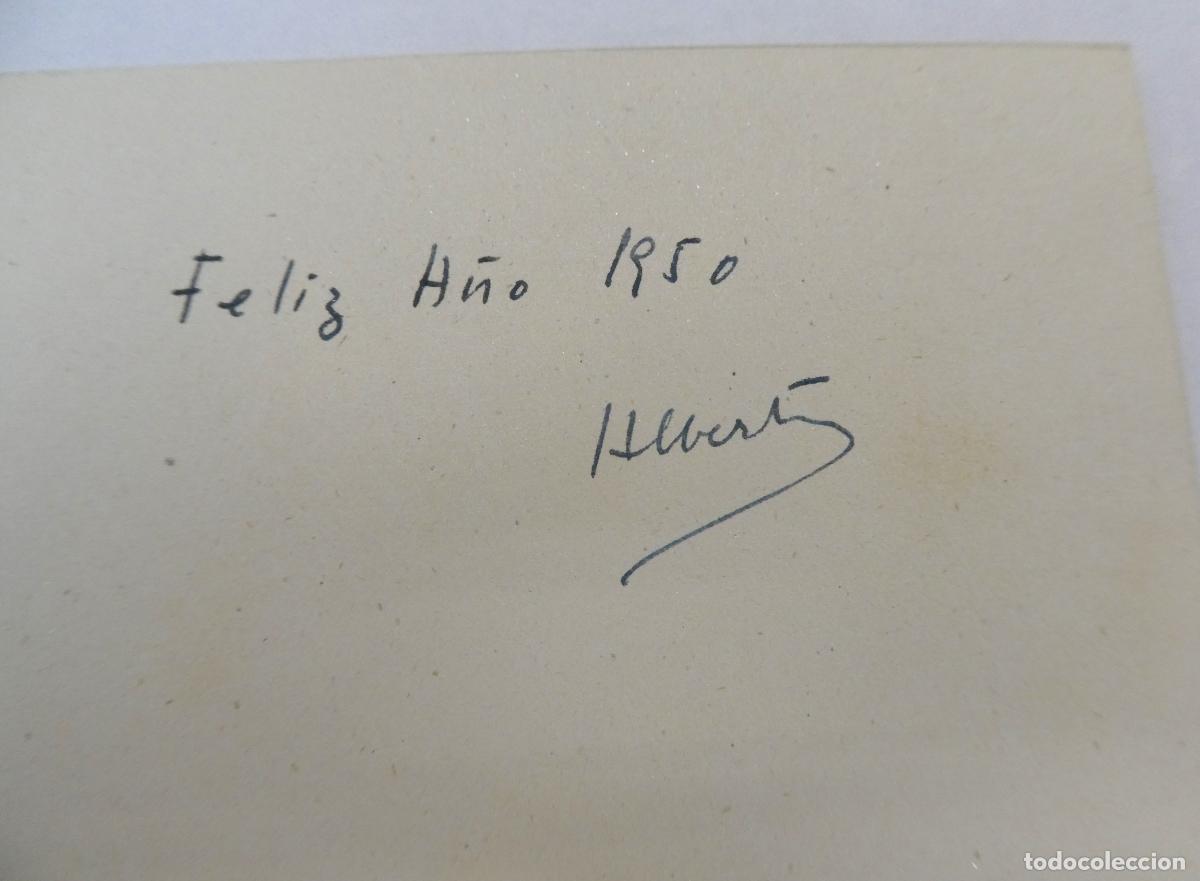 Feliz Año 1950
Alberto
todocoleccion